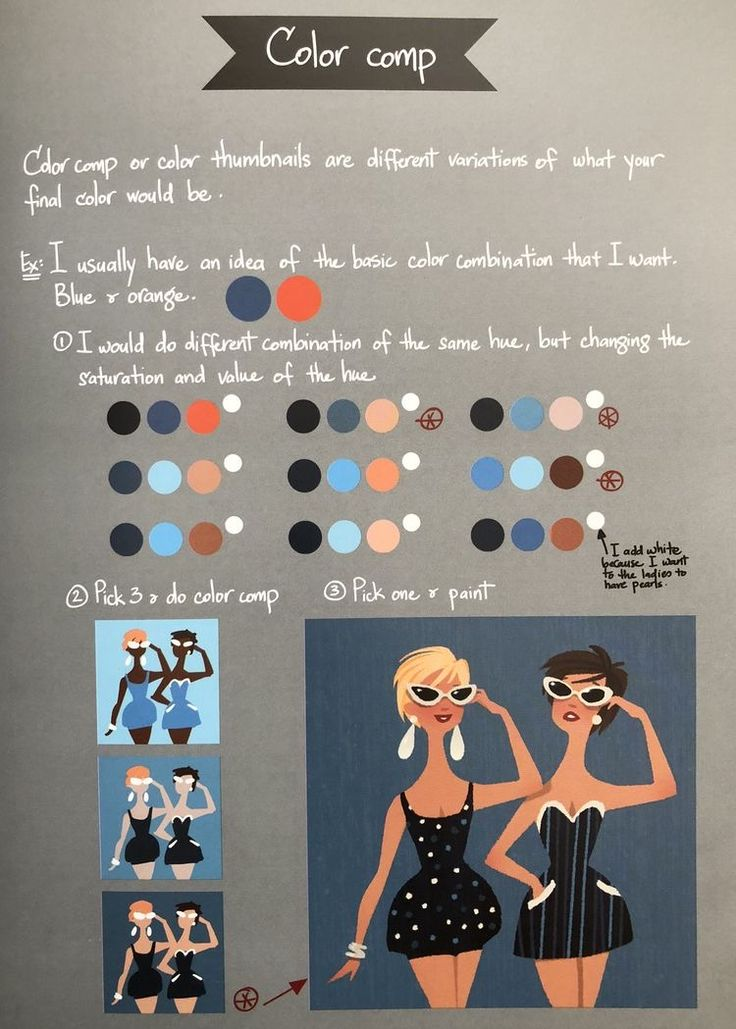 Color comp
Color comp or color thumbnails are different variations of what your
final color would be.
Ex: I usually have an idea of the basic color combination that I want.
Blue & orange.
① I would do different combination of the same hue, but changing the
saturation and value of the hue
I add white
because I want
to the ladies to
have pearls.
② Pick 3 & do color comp
③ Pick one & paint